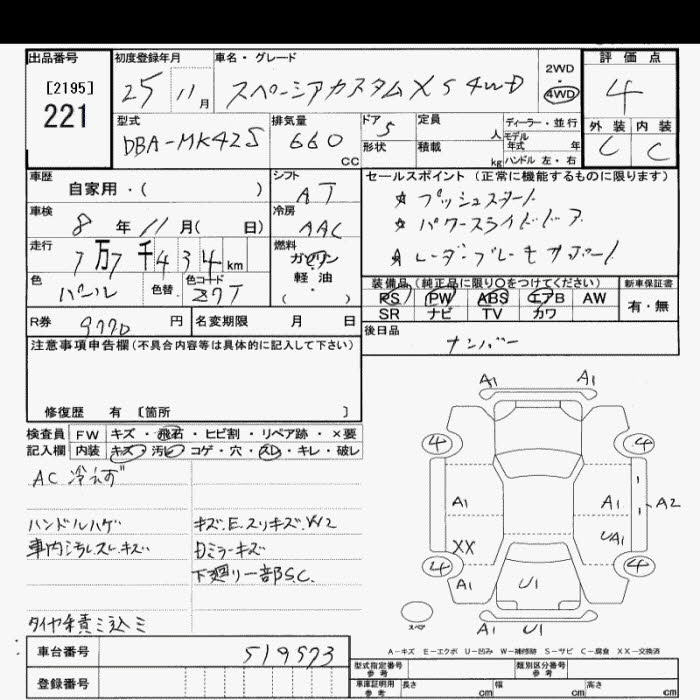 出品番号 初度登録年月 車名・グレード 2WD 評価点
[2195] 25 11月 スペーシアカスタム XS 4WD 4WD 4
221
型式 排気量 ドア 定員 人 ディーラー・並行 外装 内装
DBA-MK42S 660 CC 5 モデル年式 年 C C
形状 積載 kg ハンドル 左・右
車歴 シフト セールスポイント (正常に機能するものに限ります)
自家用・( ) AT ☆ プッシュスタート
車検 冷房 ☆ パワースライドドア
8年 11月( 日) AAC
走行 燃料 ☆ レーダーブレーキサポート
7万7千434km ガソリン・軽油・( )
色 色替 色コード 装備品 (純正品に限り○をつけてください) 新車保証書
パール Z7T PS PW ABS エアB AW 有・無
SR ナビ TV カワ
R券 9770円 名変期限 月 日 後日品
ナンバー
注意事項申告欄 (不具合内容等は具体的に記入して下さい)
修復歴 有 〔箇所 〕
検査員記入欄 FW キズ・飛石・ヒビ割・リペア跡・×要
内装 キズ・汚レ・コゲ・穴・スレ・キレ・破レ
AC 冷えず
ハンドルハゲ
車内汚レスレ.キズ
キズ.E.スリキズ.W2
Dミラーキズ
下廻り一部S.C.
タイヤ積ミ込ミ
A1 A1
4 4
A1 A1 A2
XX UA1
4 4
A1 U1
スペア
A1 U1
A-キズ E-エクボ U-凹み W-補修跡 S-サビ C-腐食 XX-交換済
車台番号 519573
登録番号
型式指定番号 参考 類別区分番号 参考
車庫証明用 参考 長さ cm 幅 cm 高さ cm